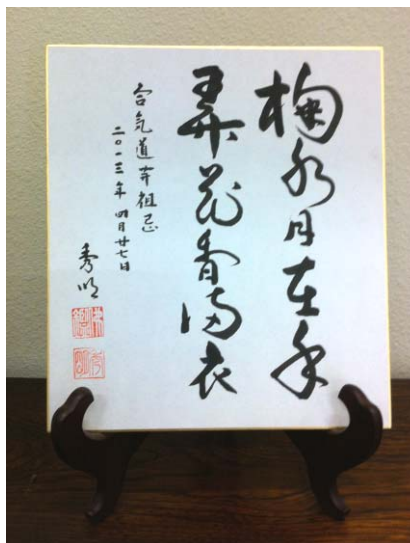 掬水月在手
弄花香満衣
合気道開祖忌
二〇一三年 四月廿七日
秀明